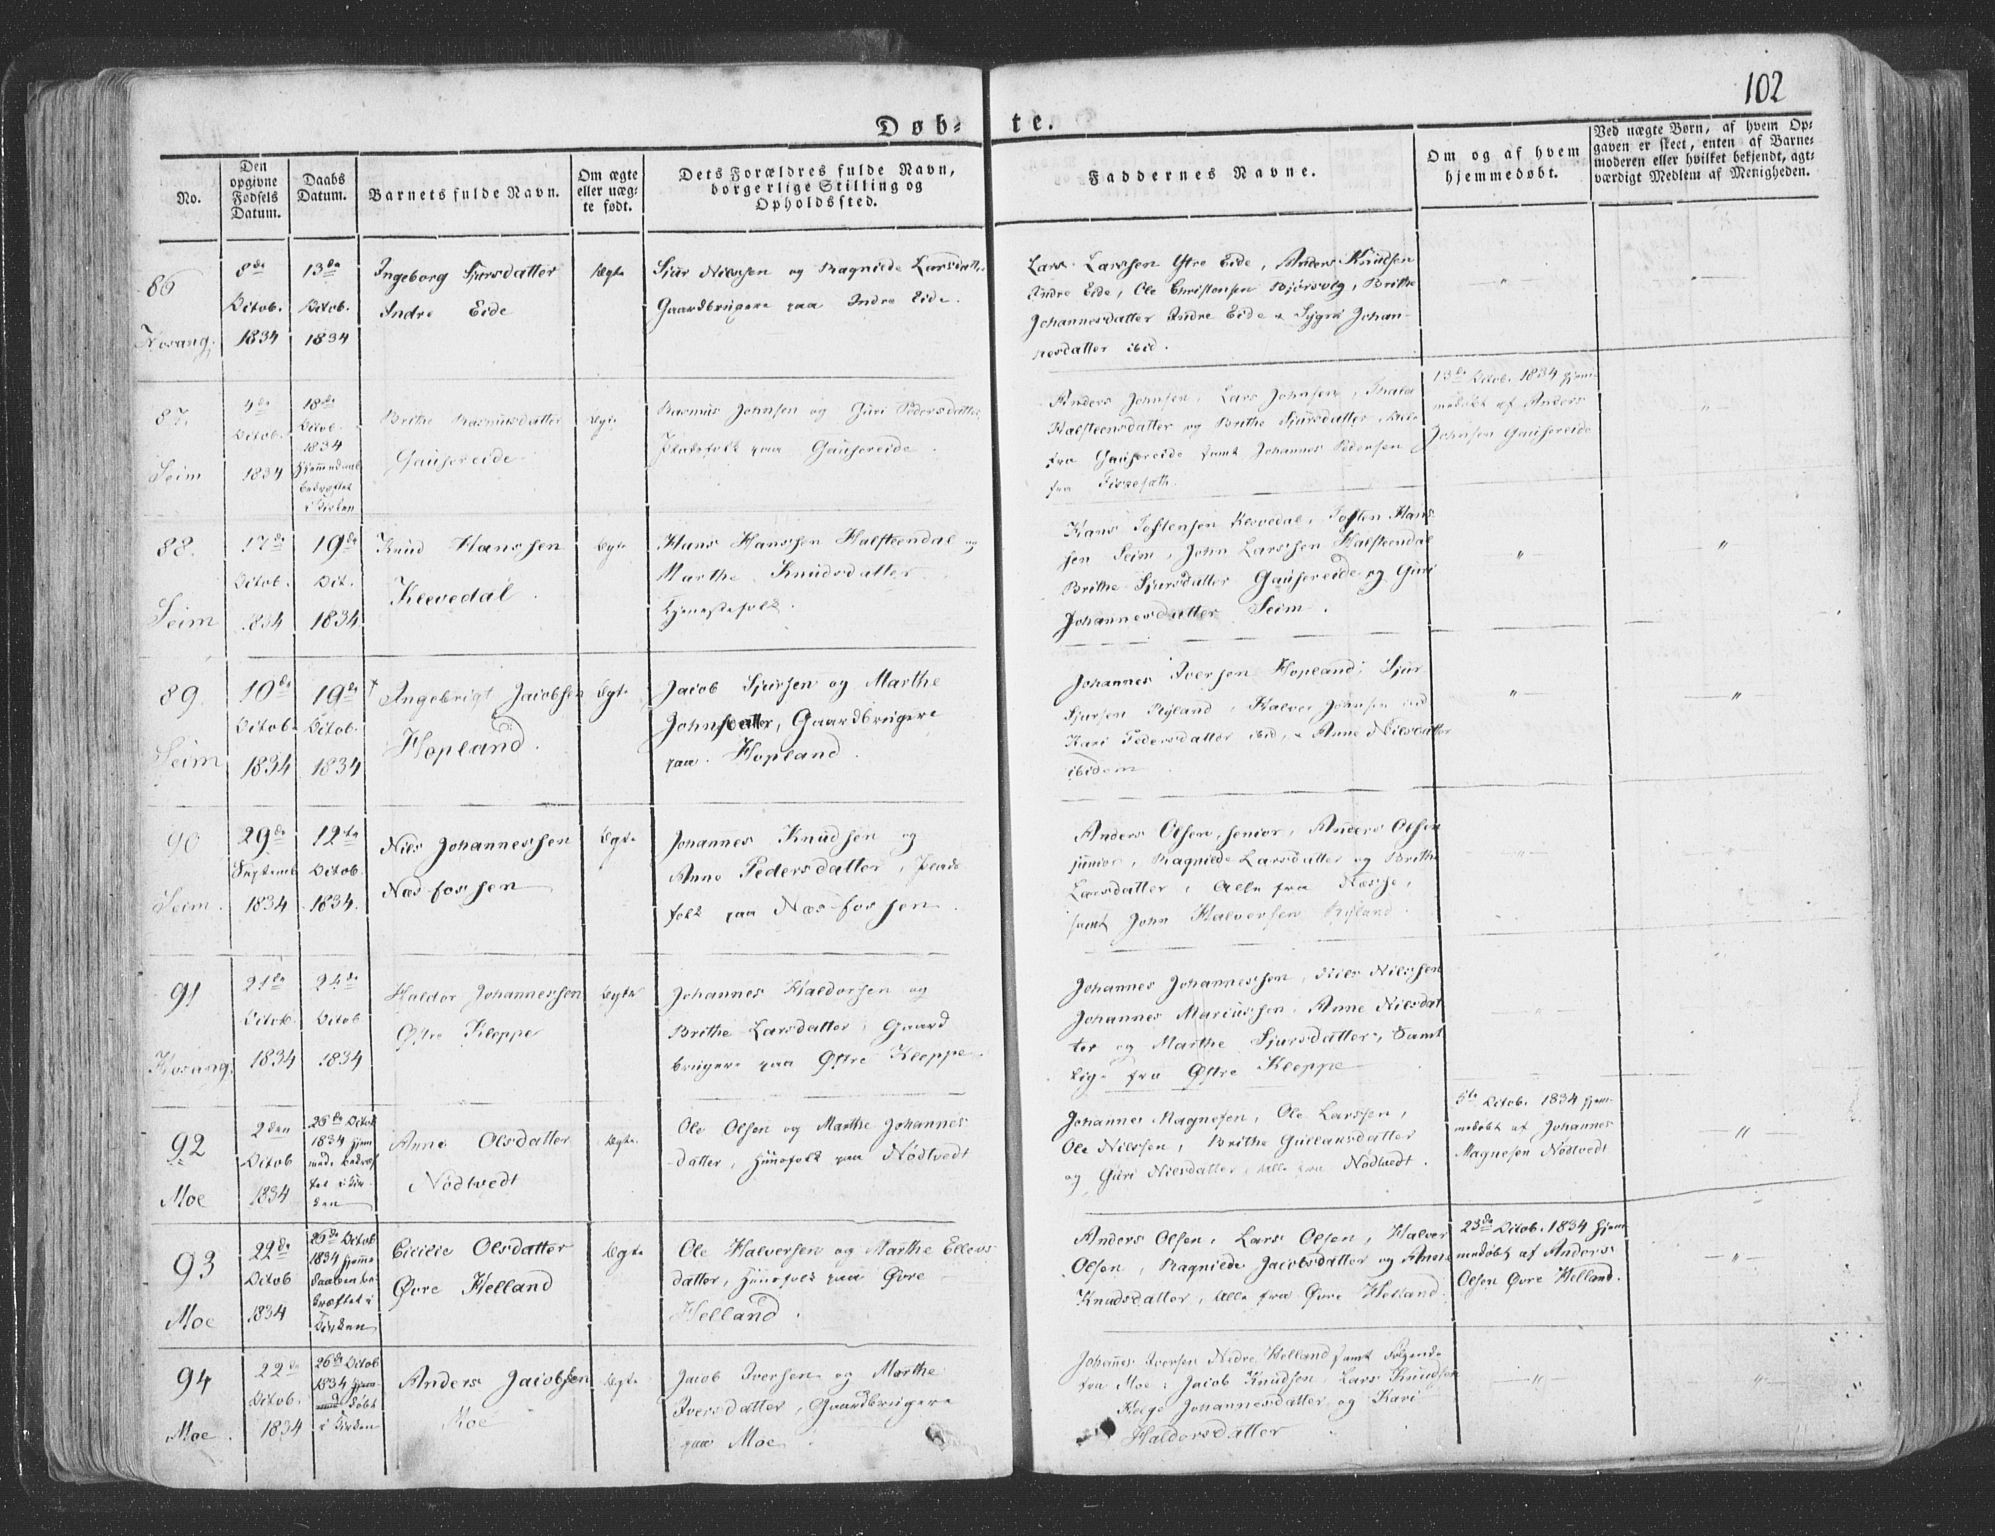 102
Døb- te.
No.
Den opgivne Fødsels Datum.
Daabs Datum.
Barnets fulde Navn.
Om ægte eller uægte født.
Dets Forældres fulde Navn, borgerlige Stilling og Opholdssted.
Faddernes Navne.
Om og af hvem hjemmedøbt.
Ved uægte Børn, af hvem Opgaven er skeet, enten af Barnemoderen eller hvilket bekjendt, agtværdigt Medlem af Menigheden.
86
Hosang.
8de
Octob.
1834
13de
Octob.
1834
Ingeborg Sjursdatter
Indre Eide
Ægte
Sjur Nilssen og Ragnilde Larsdatter
Gaardbrugere paa Indre Eide.
Lars Larssen Ytre Eide, Anders Knudsen
Indre Eide, Ole Christensen Bjørsvig, Brithe
Johannesdatter Indre Eide & Sygni Johan-
nesdatter ibid.
87.
Seim
4de
Octob.
1834
18de
Octob.
1834
i Kirken
Brithe Rasmusdatter
Gausereide
Ægte
Rasmus Johnsen og Guri Pedersdatter,
Pladsfolk paa Gausereide.
Anders Johnsen, Lars Johnsen,
Halsteensdatter og Brithe Sjursdatter, Alle
fra Gausereide samt Johannes Pedersen
fra
13de Octob. 1834 hjem-
medøbt af Anders
Johnsen Gausereide
88.
Seim
17de
Octob.
1834
19de
Oct.
1834
Knud Hanssen
Klevedal.
Ægte
Hans Hanssen Halsteendal og
Marthe Knudsdatter
tjenestefolk.
Hans Tostensen Klevedal, Tosten Hans
sen Seim, John Larssen Halsteendal
Brithe Sjursdatter Gausereide og Guri
Johannesdatter Seim.
89.
Seim
10de
Octob.
1834
19de
Octob.
1834
Ingebrigt Jacobsen
Hopland.
Ægte
Jacob Sjursen og Marthe
Johnsdatter, Gaardbrugere
paa Hopland.
Johannes Iversen Hopland, Sjur
Sjursen Ryland, Halvor Johnsen ibid
Kari Pedersdatter ibid, & Anne Nilsdatter
ibidem
90
Seim.
29de
Septemb.
1834
12te
Octob.
1834.
Nils Johannessen
Næsfossen
Ægte
Johannes Knudsen og
Anne Pedersdatter, Plads
folk paa Næsfossen.
Anders Olsen, senior, Anders Olsen
junior, Ragnilde Larsdatter og Brithe
Larsdatter, Alle fra Næsse,
samt John Halversen Ryland.
91
Hosang.
21de
Octob.
1834
24de
Octob
1834
Haldor Johannessen
Østre Kleppe
Ægte
Johannes Haldorsen og
Brithe Larsdatter, Gaard
brugere paa Østre Kleppe.
Johannes Johannessen, Nils Nilssen
Johannes Mariussen, Anne Nilsdat
ter og Marthe Sjursdatter, Samt
lige fra Østre Kleppe
92
Moe
2den
Octob
1834
26de Octob
1834 hjem
med. bekræf
tet i Kir-
ken
Anne Olsdatter
Nødtvedt
Ægte
Ole Olsen og Marthe Johannes
datter, Huusfolk paa Nødtvedt
Johannes Magnesen, Ole Larssen,
Ole Nilssen, Brithe Gullaksdatter
og Guri Nilsdatter, alle fra Nødtvedt.
5te Octob. 1834 hjem-
medøbt af Johannes
Magnesen Nødtvedt
93
Moe
22de
Octob
1834
26de Octob
1834 hjemme
daaben be-
kræftet i
Kirken
Cicilie Olsdatter
Øvre Helland
Ægte
Ole Halversen og Marthe Ellevs
datter, Huusfolk paa Øvre
Helland.
Anders Olsen, Lars Olsen, Halver
Olsen, Ragnilde Jacobsdatter og Anne
Knudsdatter, Alle fra Øvre Helland.
23de Octob. 1834 hjem
medøbt af Anders
Olsen Øvre Helland.
94
Moe.
22de
Octob.
1834
26de Octob
1834
døbt
i Kirken
Anders Jacobsen
Moe
Ægte
Jacob Iversen og Marthe
Iversdatter, Gaardbrugere
paa Moe.
Johannes Iversen Nedre Helland samt følgende
fra Moe: Jacob Knudsen, Lars Knudsen
Helge Johannesdatter og Kari
Haldorsdatter